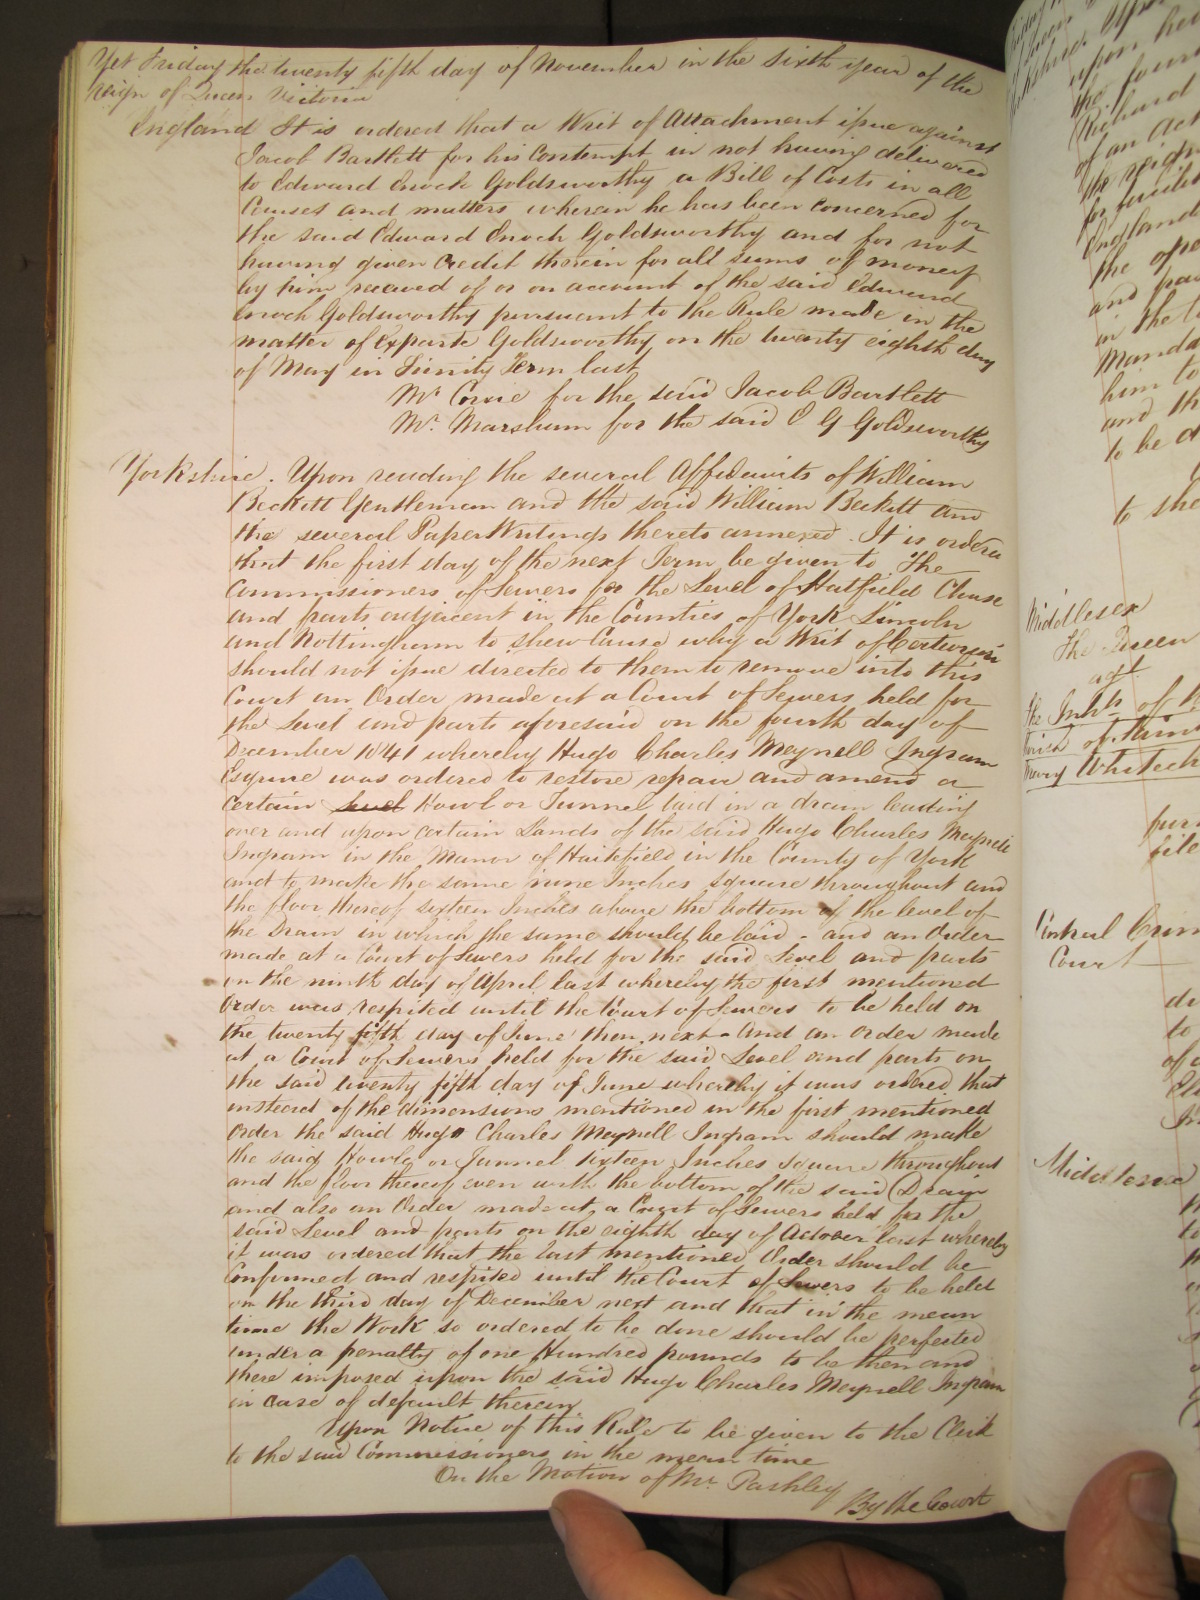 Yet Friday the twenty fifth day of November in the sixth year of the
reign of Queen Victoria
England It is ordered that a Writ of Attachment issue against
Jacob Bartlett for his Contempt in not having delivered
to Edward Enoch Goldsworthy a Bill of Costs in all
Causes and matters wherein he has been concerned for
the said Edward Enoch Goldsworthy and for not
having given Credit therein for all sums of money
by him received of or on account of the said Edward
Enoch Goldsworthy pursuant to the Rule made in the
matter of Exparte Goldsworthy on the twenty eighth day
of May in Trinity Term last
Mr. for the said Jacob Bartlett
Mr. Marshum for the said E G Goldsworthy
Yorkshire. Upon reading the several Affidavits of William
Beckett Gentleman and the said William Beckett and
the several Paper Writings thereto annexed. It is ordered
that the first day of the next Term be given to The
Commissioners of Sewers for the Level of Hatfield Chase
and parts adjacent in the Counties of York Lincoln
and Nottingham to shew Cause why a Writ of Certiorari
should not issue directed to them to remove into this
Court an Order made at a Court of Sewers held for
the Level and parts aforesaid on the fourth day of
December 1841 whereby Hugo Charles Meynell Ingram
Esquire was ordered to restore repair and amend a
certain level Howl or Tunnel laid in a drain leading
over and upon certain Lands of the said Hugo Charles Meynell
Ingram in the Manor of Haitefield in the County of York
and to make the same nine Inches square throughout and
the floor thereof sixteen Inches above the bottom of the level of
the Drain in which the same should be laid - and an Order
made at a Court of Sewers held for the said Level and parts
on the ninth day of April last whereby the first mentioned
Order was respited until the Court of Sewers to be held on
the twenty fifth day of June then next - And an order made
at a Court of Sewers held for the said Level and parts on
the said twenty fifth day of June whereby it was ordered that
instead of the dimensions mentioned in the first mentioned
Order the said Hugo Charles Meynell Ingram should make
the said Howle or Tunnel sixteen Inches square throughout
and the floor thereof even with the bottom of the said Drain
and also an Order made at a Court of Sewers held for the
said Level and parts on the eighth day of October last whereby
it was ordered that the last mentioned Order should be
Confirmed and respited until the Court of Sewers to be held
on the third day of December next and that in the mean
time the Work so ordered to be done should be perfected
under a penalty of one Hundred pounds to be then and
there imposed upon the said Hugo Charles Meynell Ingram
in case of default therein
Upon Notice of this Rule to be given to the Clerk
to the said Commissioners in the mean time
On the Motion of Mr. Pashley
By the Court
upon
the four
Richard
of an Act
the reign
England
and
in the
him to
and th
to be d
to she
Middlesex
The Queen
agt
The Inhts of
Mary Whitech
file
Central Crim
Court
to
of
Middlesex